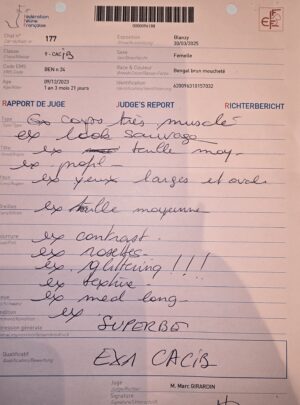 Fédération
Féline
Française
000009R188
Chat n° 177 Exposition Blanzy
30/03/2025
Classe 9 - CACIB Sexe Femelle
Code EMS BEN n 24 Race & Couleur Bengal brun moucheté
09/12/2023 Identification
1 an 3 mois 21 jours
RAPPORT DE JUGE JUDGE'S REPORT RICHTERBERICHT
Ex corps très musclé
ex look sauvage
ex taille moy.
ex profil
ex yeux larges et ovale
ex taille moyenne
ex contrast.
ex rosettes
ex glittering !!!
ex texture
ex med long
ex
SUPERBE
Qualificatif EX1 CACIB
Juge M. Marc GIRARDIN
Signature